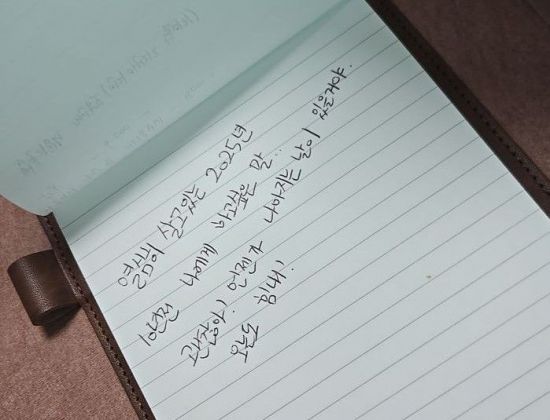 열심히 살고있는 2025년
10년전 나에게 하고싶은 말..
괜찮아, 언젠간 나아지는 날이 있을거야.
오늘도 힘내!